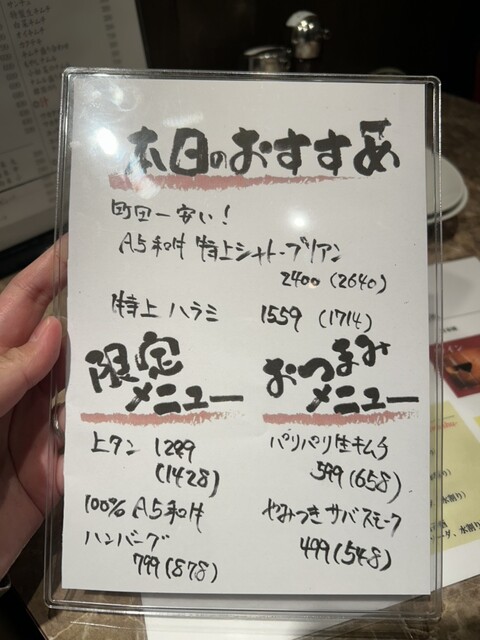 本日のおすすめ
町田一安い！
A5和牛 特上シャトーブリアン
2400 (2640)
特上 ハラミ 1559 (1714)
限定
メニュー
上タン 1299
(1428)
100% A5和牛
ハンバーグ
799 (878)
おつまみ
メニュー
パリパリ生キムチ
599 (658)
やみつきサバスモーク
499 (548)